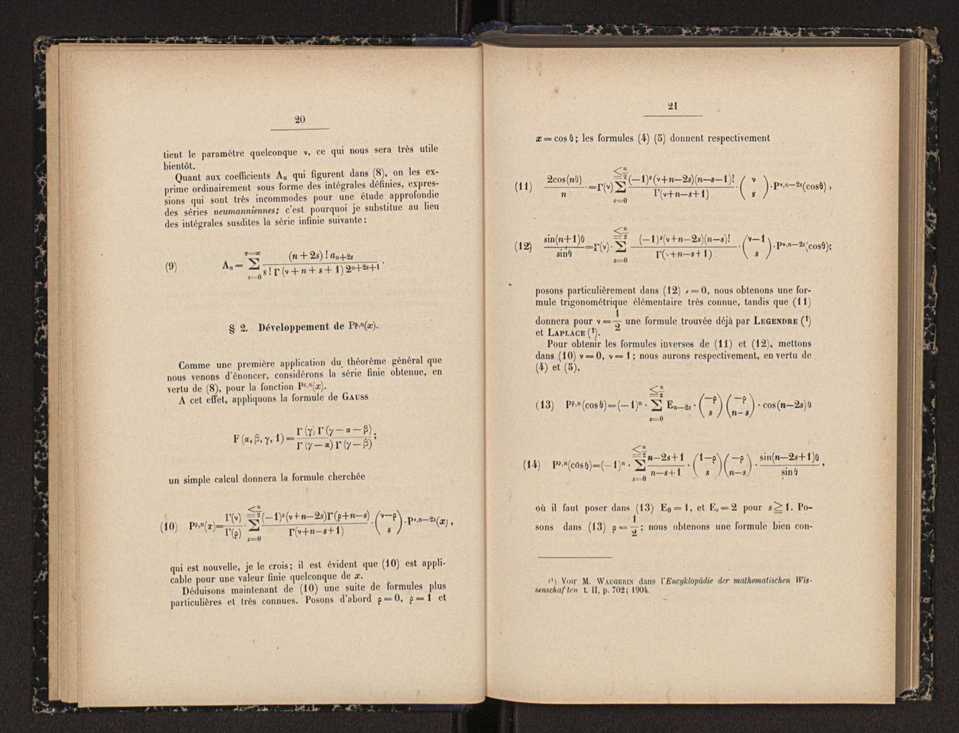 20
tient le paramètre quelconque ν, ce qui nous sera très utile
bientôt.
Quant aux coefficients Aₙ qui figurent dans (8), on les ex-
prime ordinairement sous forme des intégrales définies, expres-
sions qui sont très incommodes pour une étude approfondie
des séries neumanniennes; c'est pourquoi je substitue au lieu
des intégrales susdites la série infinie suivante:
(9) Aₙ = Σ_{s=0}^{s=∞} (n + 2s)! aₙ₊₂ₛ / s! Γ(ν + n + s + 1) 2ⁿ⁺²ˢ⁺¹.
§ 2. Développement de Pᵖ,ⁿ(x).
Comme une première application du théorème général que
nous venons d'énoncer, considérons la série finie obtenue, en
vertu de (8), pour la fonction Pᵖ,ⁿ(x).
A cet effet, appliquons la formule de GAUSS
F(α, β, γ, 1) = Γ(γ) Γ(γ — α — β) / Γ(γ — α) Γ(γ — β);
un simple calcul donnera la formule cherchée
(10) P^{ρ,n}(x) = Γ(ν)/Γ(ρ) Σ_{s=0}^{≦n/2} (—1)ˢ(ν+n—2s)Γ(ρ+n—s) / Γ(ν+n—s+1) · (ν—ρ / s) · P^{ν,n—2s}(x),
qui est nouvelle, je le crois; il est évident que (10) est appli-
cable pour une valeur finie quelconque de x.
Déduisons maintenant de (10) une suite de formules plus
particulières et très connues. Posons d'abord ρ = 0, ρ = 1 et
21
x = cos θ; les formules (4) (5) donnent respectivement
(11) 2cos(nθ) / n = Γ(ν) Σ_{s=0}^{≦n/2} (—1)ˢ(ν+n—2s)(n—s—1)! / Γ(ν+n—s+1) · (ν / s) · P^{ν,n—2s}(cosθ),
(12) sin(n+1)θ / sinθ = Γ(ν) · Σ_{s=0}^{≦n/2} (—1)ˢ(ν+n—2s)(n—s)! / Γ(ν+n—s+1) · (ν—1 / s) · P^{ν,n—2s}(cosθ);
posons particulièrement dans (12) ν = 0, nous obtenons une for-
mule trigonométrique élémentaire très connue, tandis que (11)
donnera pour ν = 1/2 une formule trouvée déjà par LEGENDRE (¹)
et LAPLACE (¹).
Pour obtenir les formules inverses de (11) et (12), mettons
dans (10) ν = 0, ν = 1; nous aurons respectivement, en vertu de
(4) et (5),
(13) P^{ρ,n}(cosθ) = (—1)ⁿ · Σ_{s=0}^{≦n/2} Eₙ₋₂ₛ · (—ρ / s) (—ρ / n—s) · cos(n—2s)θ
(14) P^{ρ,n}(cosθ) = (—1)ⁿ · Σ_{s=0}^{≦n/2} n—2s+1 / n—s+1 · (1—ρ / s) (—ρ / n—s) · sin(n—2s+1)θ / sinθ,
où il faut poser dans (13) E₀ = 1, et Eₛ = 2 pour s ≧ 1. Po-
sons dans (13) ρ = 1/2; nous obtenons une formule bien con-
(¹) Voir M. WANGERIN dans l'Encyklopädie der mathematischen Wis-
senschaften t. II, p. 702; 1904.